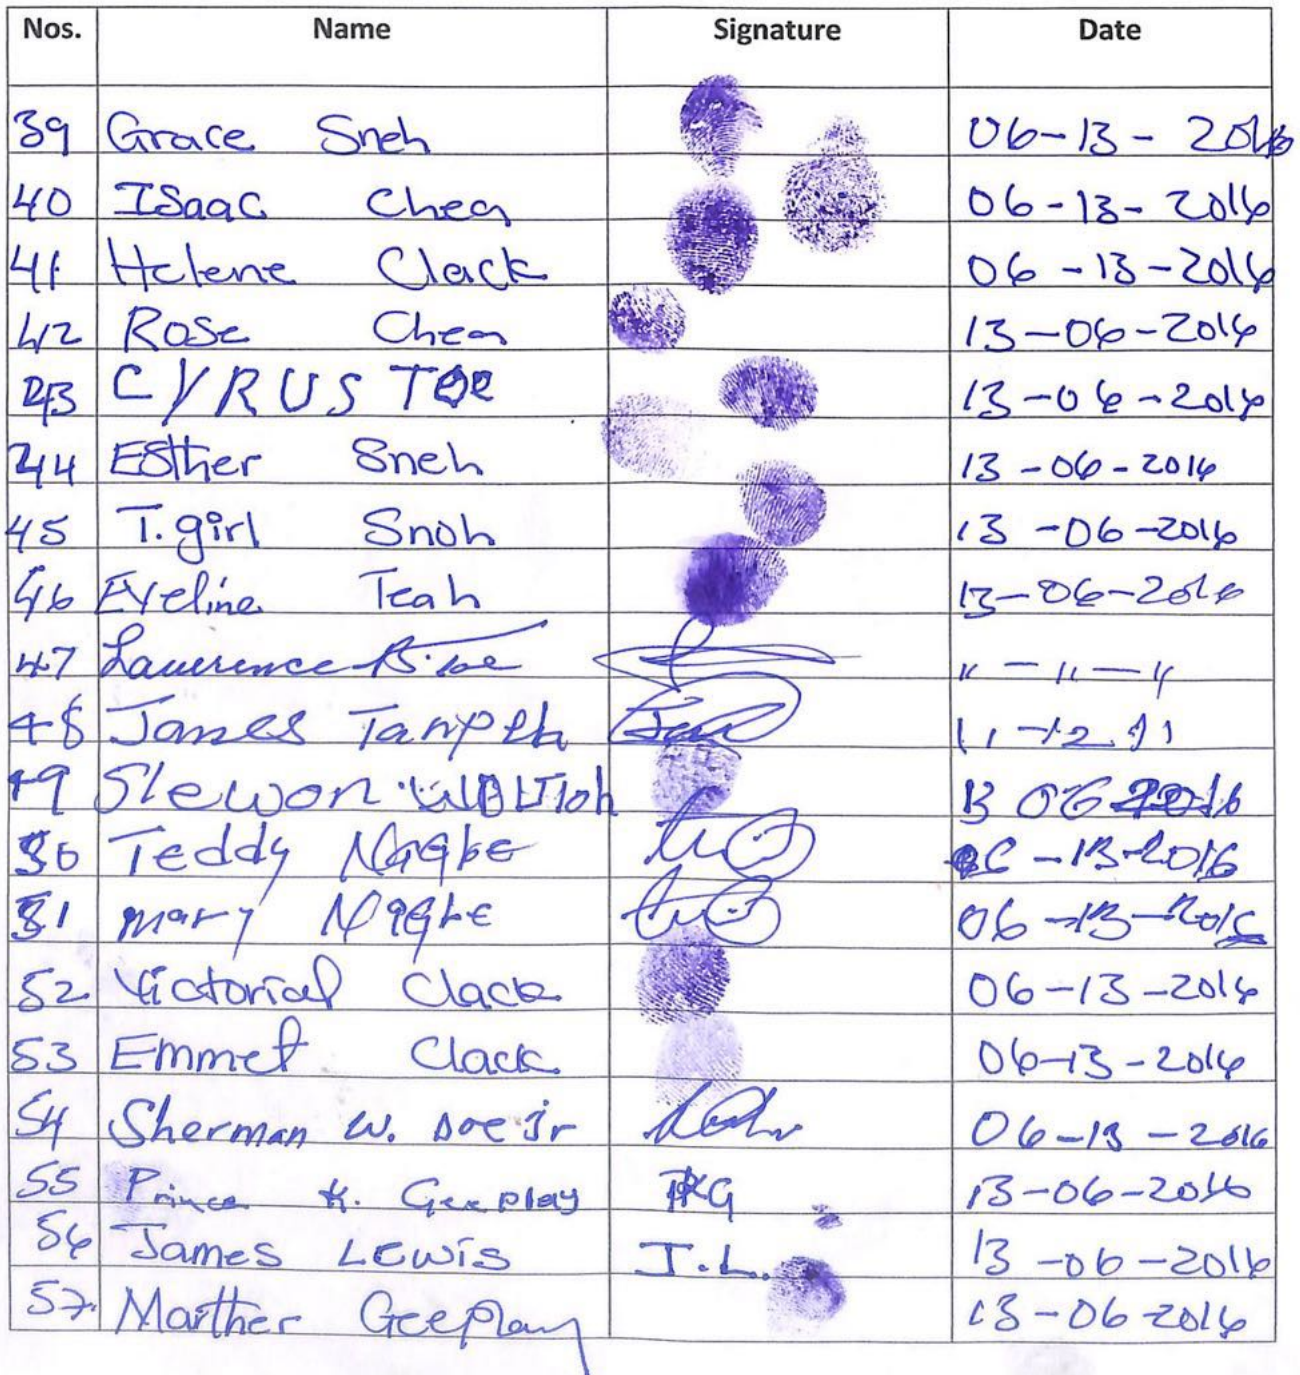 Nos. Name Signature Date
39 Grace Sneh 06-13-2016
40 ISaac Chea 06-13-2016
41 Helene Clack 06-13-2016
42 Rose Chea 13-06-2016
43 CYRUS TOE 13-06-2016
44 ESther Sneh 13-06-2016
45 T.girl Snoh 13-06-2016
46 Eveline Teah 13-06-2016
47 Lawrence " - " - "
48 James Tanpeh
49 Slewon 13 06 2016
50 Teddy Nagbe 06-13-2016
51 mary Nagbe 06-13-2016
52 Victorial Clack 06-13-2016
53 Emmet Clack 06-13-2016
54 Sherman W. Doe Jr 06-13-2016
55 Prince K. Geeplay PKG 13-06-2016
56 James LEWis J.L. 13-06-2016
57. Marther Geeplay 13-06-2016